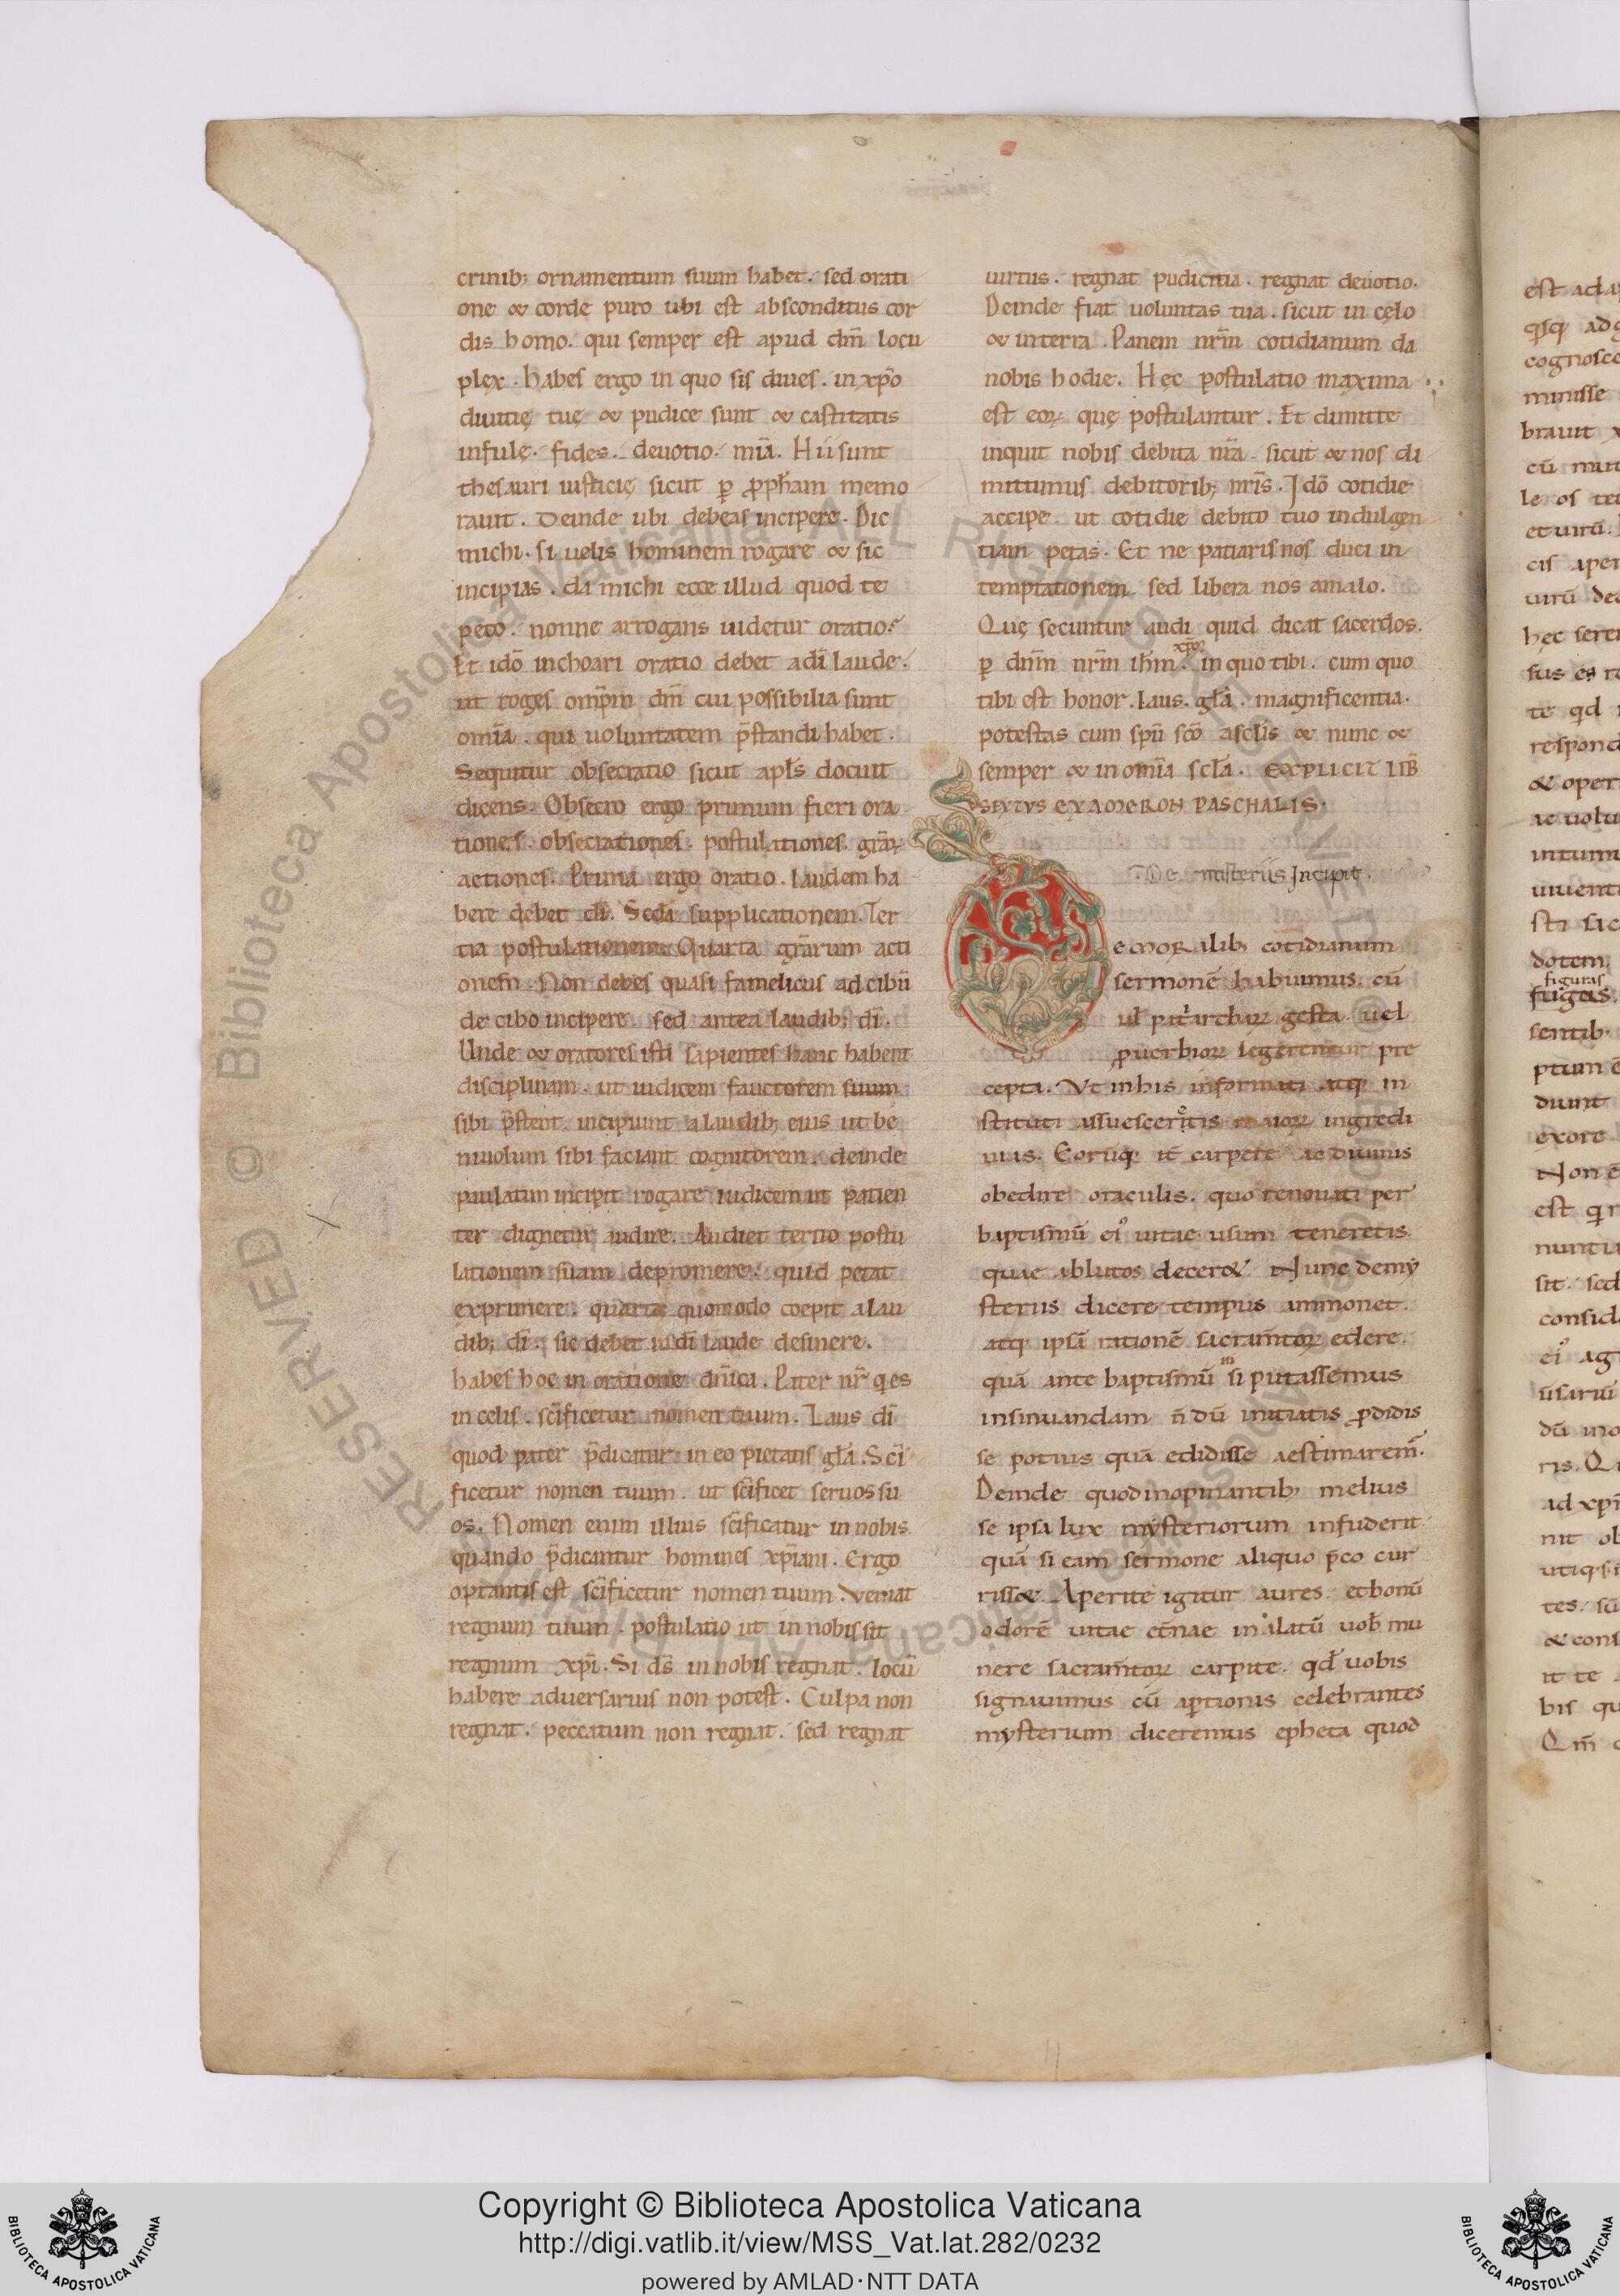 crinib; ornamentum suum habet. sed orati
one & corde puro ubi est absconditus cor
dis homo. qui semper est apud dm̄ locu
plex. habes ergo in quo sis diues. in xp̄o
diuitię tuę & pudice sunt & castitatis
infulę. fides. deuotio. mīa. Hii sunt
thesauri iusticię sicut p̱ ꝓph̄am memo
rauit. Deinde ubi debeas incipere. Dic
michi. si uelis hominem rogare & sic
incipias. da michi ecce illud quod te
peto. nonne arrogans uidetur oratio?
Et idō inchoari oratio debet a dī laude.
ut roges omp̄m dm̄ cui possibilia sunt
omīa. qui uoluntatem p̄standi habet.
Sequitur obsecratio sicut apl̄s docuit
dicens. Obsecro ergo primum fieri ora
tiones. obsecrationes. postulationes. grāꝝ
actiones. Prima ergo oratio. laudem ha
bere debet dī. Scđa supplicationem. Ter
tia postulationem. Quarta grārum acti
onem. Non debes quasi famelicus ad cibū
de cibo incipere. sed antea laudib; dī.
Unde & oratores isti sapientes hanc habent
disciplinam. ut iudicem fauctorem suum
sibi p̄stent. incipiunt a laudib; eius ut be
niuolum sibi faciant cognitorem. deinde
paulatim incipit rogare iudicem ut patien
ter dignetur audire. Audiet tertio postu
lationem suam depromere. quid petat
exprimere. quarta quomodo coepit a lau
dib; dī. sic debet in dī laude desinere.
habes hoc in oratione dn̄ica. Pater nr̄ q̄ es
in celis. scīficetur nomen tuum. Laus dī
quod pater p̄dicatur in eo pietatis gl̄a. Scī
ficetur nomen tuum. ut scīficet seruos su
os. Nomen enim illius scīficatur in nobis.
quando p̄dicantur homines xp̄iani. Ergo
optantis est scīficetur nomen tuum. Veniat
regnum tuum. postulatio ut in nobis sit
regnum xp̄i. Si ds̄ in nobis regnat. locū
habere aduersarius non potest. Culpa non
regnat. peccatum non regnat. sed regnat
uirtus. regnat pudicitia. regnat deuotio.
Deinde fiat uoluntas tua. sicut in cęlo
& in terra. Panem nrm̄ cotidianum da
nobis hodie. Hęc postulatio maxima
est eoꝝ quę postulantur. Et dimitte
inquit nobis debita nrā. sicut & nos di
mittimus debitorib; nrīs. Idō cotidie
accipe. ut cotidie debito tuo indulgen
tiam petas. Et ne patiaris nos duci in
temptationem. sed libera nos a malo.
Quę secuntur audi quid dicat sacerdos.
xp̄m
p̱ dnm̄ nrm̄ ihm̄. in quo tibi. cum quo
tibi est honor. laus. gl̄a. magnificentia.
potestas cum sp̄u sc̄o a sclīs & nunc &
semper & in omīa scl̄a. EXPLICIT LIB̄
SEXTVS EXAMERON PASCHALIS.
De misteriis Incipit.
e moralib; cotidianum
sermonē habuimus. cū
ul̄ pat'archaꝝ gesta. uel
ꝓuerbioꝝ legerentur pre
cepta. Vt in his informati atq; in
stituti assuesceretis maioꝝ ingredi
uias. Eorūq; it̄ carpere ac diuinis
obedire oraculis. quo renouati per
baptismū ei' uitae usum teneretis.
quae ablutos decer&. Nunc de my
steriis dicere tempus ammonet.
atq; ipsā rationē sacram̄toꝝ edere.
quā ante baptismū si putassemus
insinuandam n̄dū initiatis ꝓdidis
se potius quā edidisse aestimarem̄.
Deinde quod inopinantib; melius
se ipsa lux mysteriorum infuderit.
quā si eam sermone aliquo p̄cu cur
riss&. Aperite igitur aures. et bonū
odorē uitae et̄nae inilatū uob̄ mu
nere sacram̄toꝝ carpite. qd̄ uobis
signauimus cū ap̱tionis celebrantes
mysterium diceremus epheta quod
Copyright © Biblioteca Apostolica Vaticana
http://digi.vatlib.it/view/MSS_Vat.lat.282/0232
powered by AMLAD·NTT DATA
BIBLIOTECA APOSTOLICA VATICANA
BIBLIOTECA APOSTOLICA VATICANA